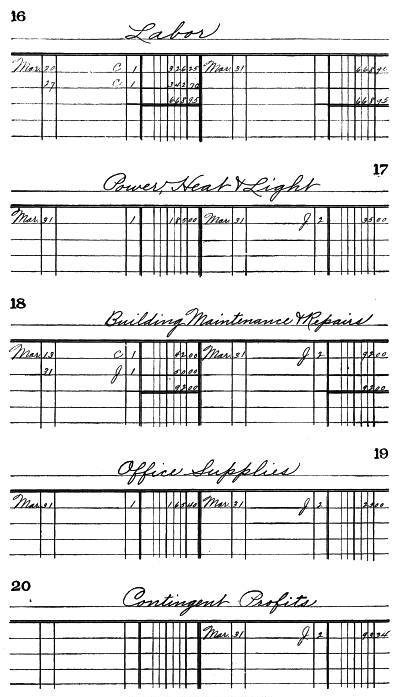 16
Labor
Mar. 20 C 1 326 25 Mar. 31 668 95
27 C 1 342 70
668 95 668 95
17
Power, Heat & Light
Mar. 31 1 Mar. 31 J 2 35 00
18
Building Maintenance & Repairs
Mar. 13 C 1 42 00 Mar. 31 J 2 92 00
31 J 1 50 00
92 00 92 00
19
Office Supplies
Mar. 31 1 165 40 Mar. 31 J 2 25 00
20
Contingent Profits
Mar. 31 J 2